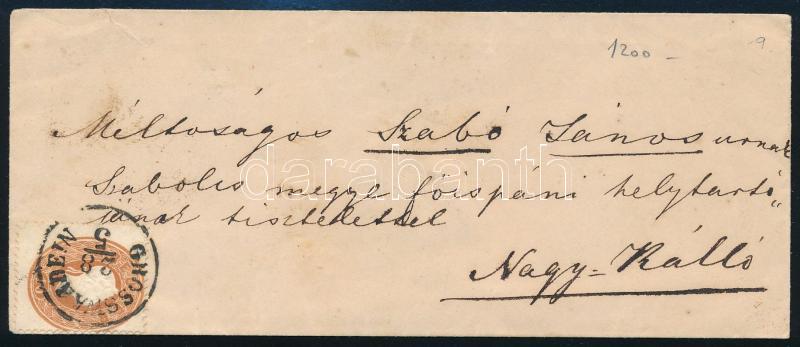 1200 –
9
Méltoságos Szabó János urnak
Sabolcs megye főispáni helytartó„
jának tisztelettel
Nagy=Kálló
GROSSWARDEIN
darabanth